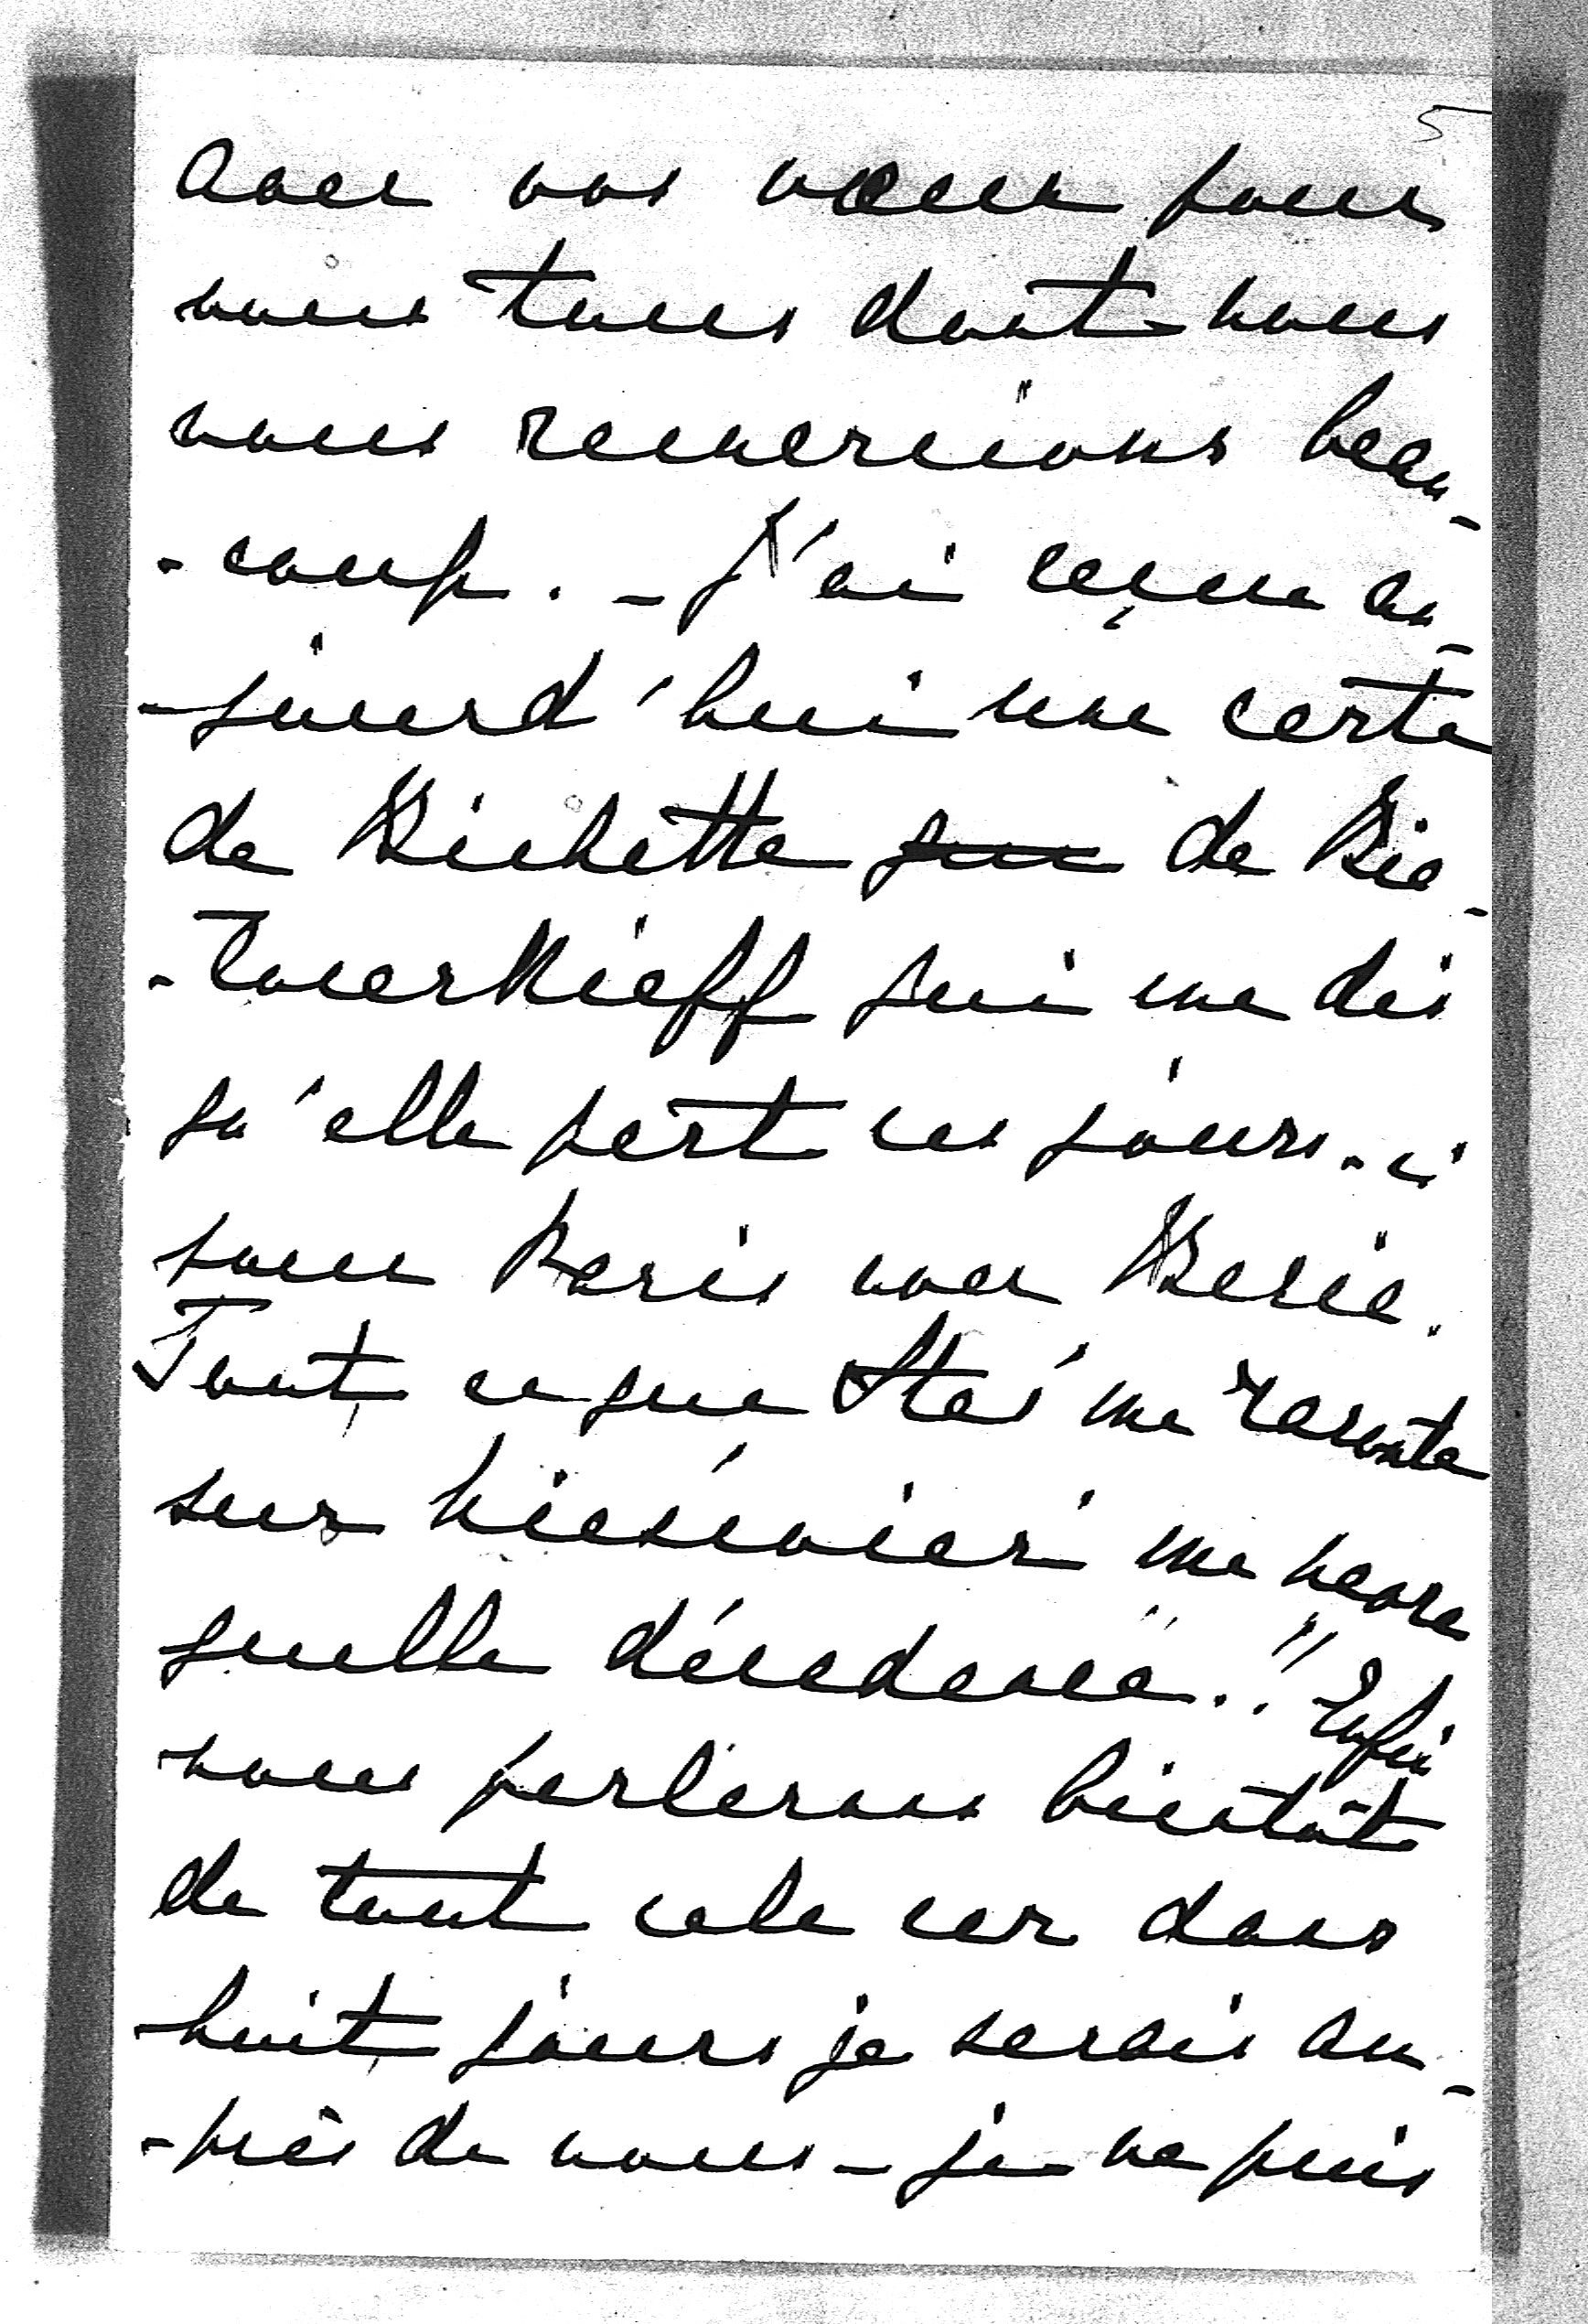 5
avec vos vœux pour
nous tous dont nous
vous remercions beau-
-coup. - J'ai reçu au-
-jourd'hui une carte
de Bichette que de Pia-
-touerkieff qui me dis
qu'elle part ces jours-ci
pour Paris voir Marie.
Tout ce que me raconte
sur me navre
quelle décadence!! Enfin
nous parlerons bientôt
de tout cela car dans
huit jours je serais au-
-près de vous - je ne puis